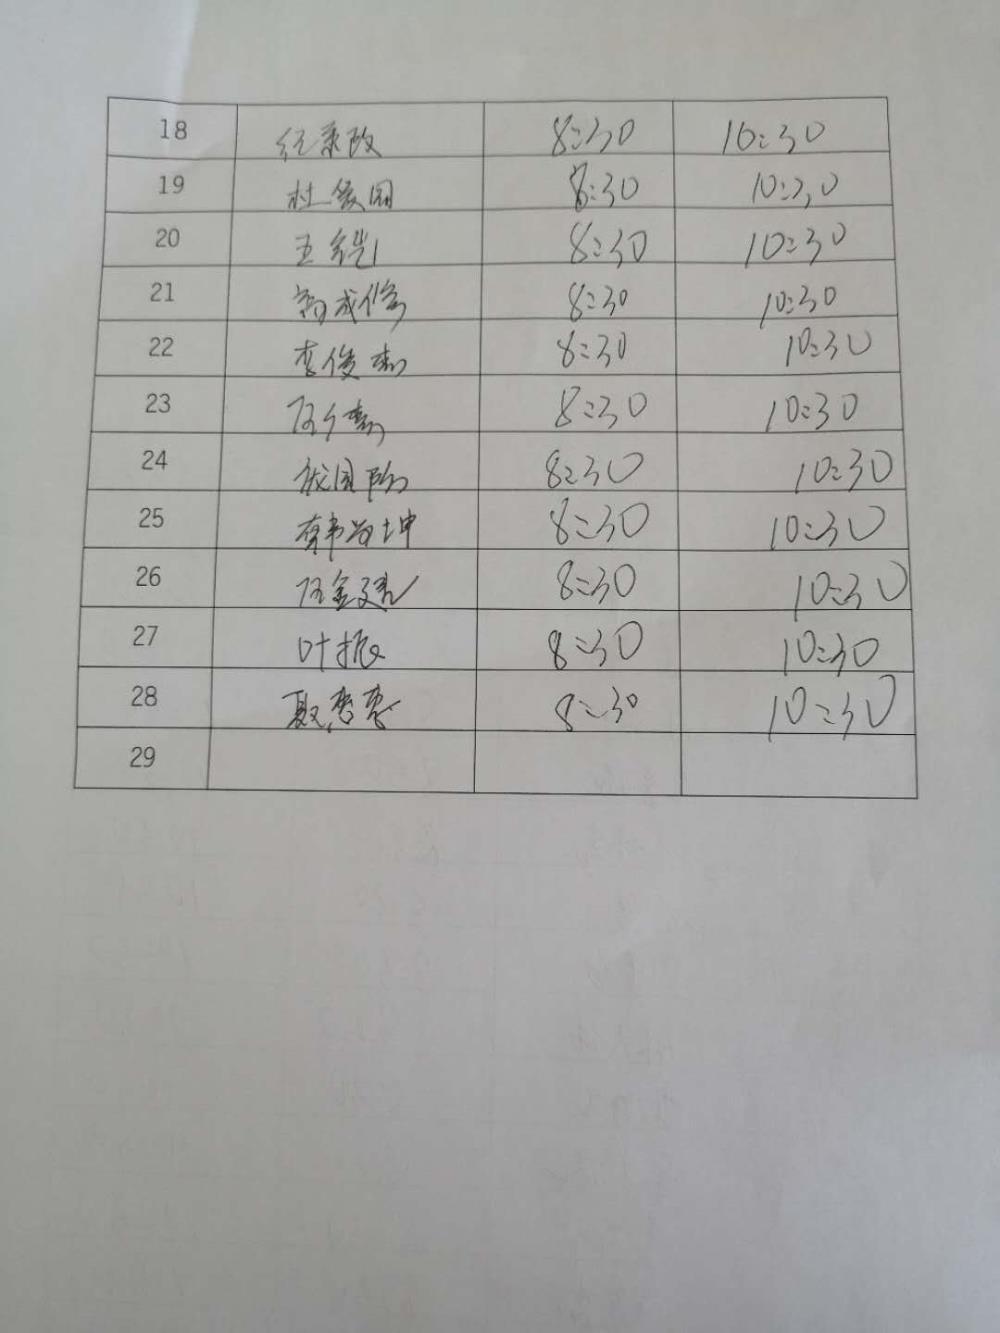 18 8:30 10:30
19 杜爱国 8:30 10:30
20 王铠 8:30 10:30
21 成修 8:30 10:30
22 李俊 8:30 10:30
23 8:30 10:30
24 国阳 8:30 10:30
25 坤 8:30 10:30
26 金建 8:30 10:30
27 叶振 8:30 10:30
28 聂 8:30 10:30
29